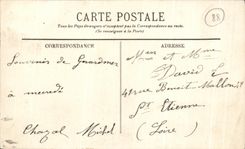 88
CARTE POSTALE
Tous les Pays étrangers n'acceptent pas la Correspondance au recto.
(Se renseigner à la Poste)
CORRESPONDANCE
ADRESSE
Souvenir de
à mercredi
Chazal
et Mme
David
41 rue Benoit-Mallon
St Etienne
(Loire)